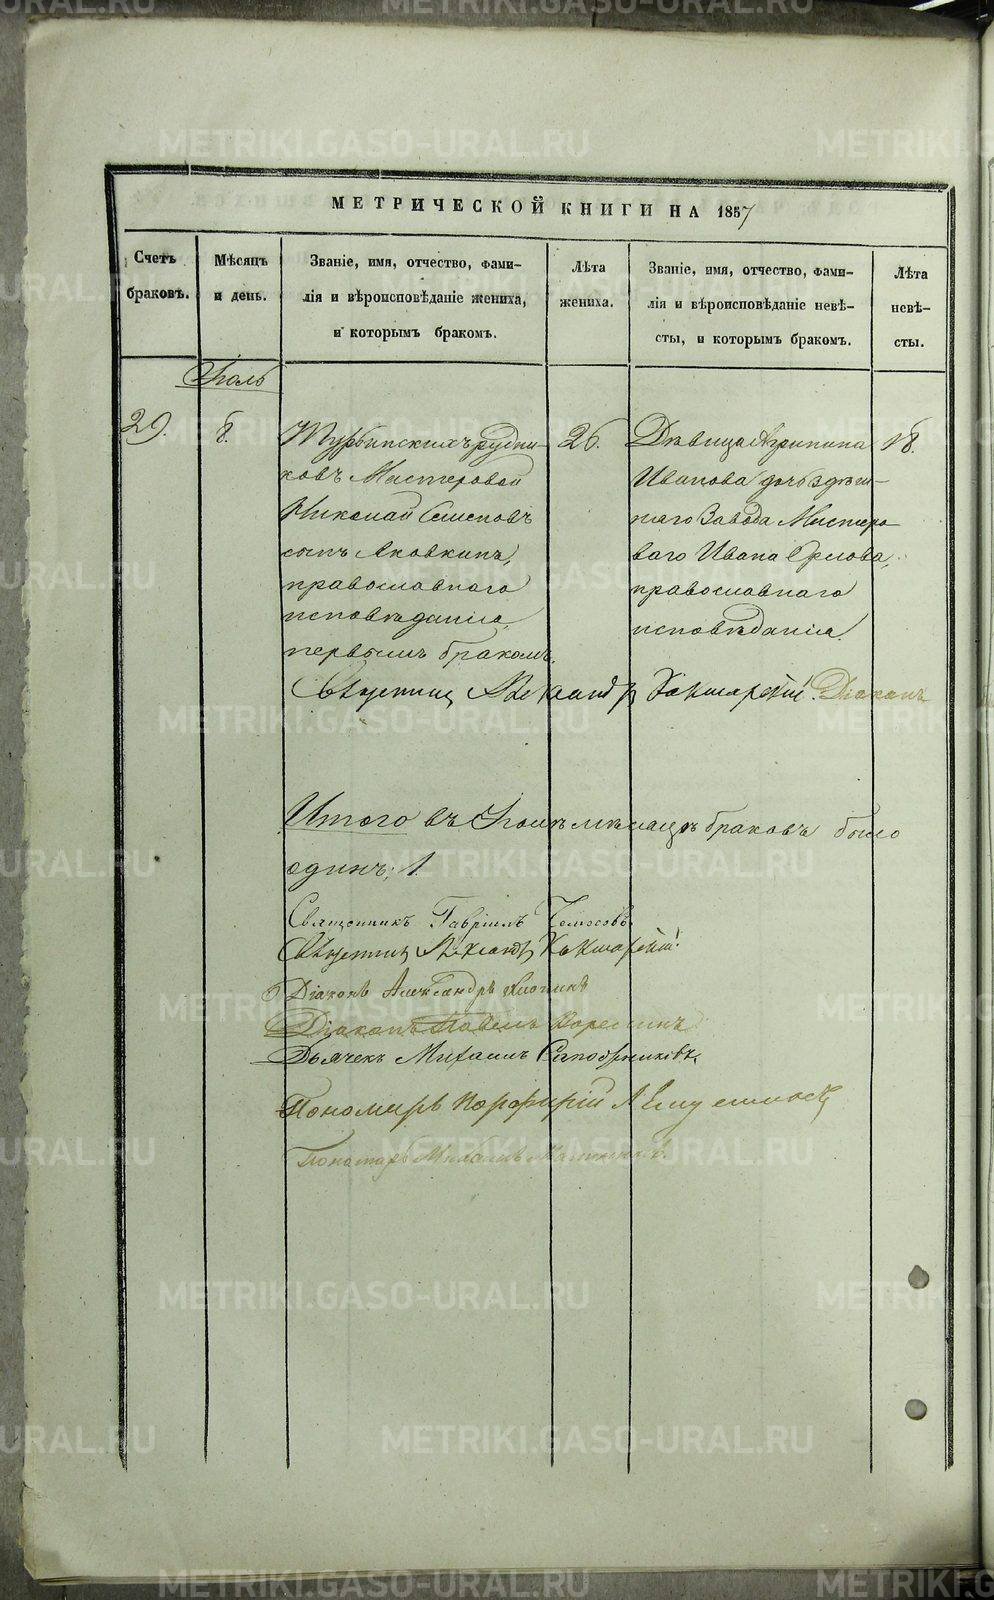 METRIKI.GASO-URAL.RU
МЕТРИЧЕСКОЙ КНИГИ НА 1857
Счетъ браковъ.
Мѣсяцъ и день.
Званіе, имя, отчество, фами-
лія и вѣроисповѣданіе жениха,
и которымъ бракомъ.
Лѣта жениха.
Званіе, имя, отчество, фами-
лія и вѣроисповѣданіе невѣ-
сты, и которымъ бракомъ.
Лѣта невѣ-
сты.
Іюль
29.
8.
Турьинскихъ рудни-
ковъ Мастеровой
Николай Семеновъ
сынъ Яковкинъ,
православнаго
исповѣданія,
первымъ бракомъ.
26.
Дѣвица Агрипина
Иванова дочь здѣш-
няго Завода Мастеро
ваго Ивана Орлова,
православнаго
исповѣданія.
18.
Священник Александр Кокшарскій. Діаконъ
Итого въ Іюлѣ мѣсяцѣ браковъ было
одинъ; 1.
Священникъ Гавріилъ
Священник Александр Кокшарскій.
Діаконъ Александръ
Діаконъ Павелъ
Дьячекъ Михаилъ Сапожниковъ
Пономарь Порфирій
Пономарь Михаилъ